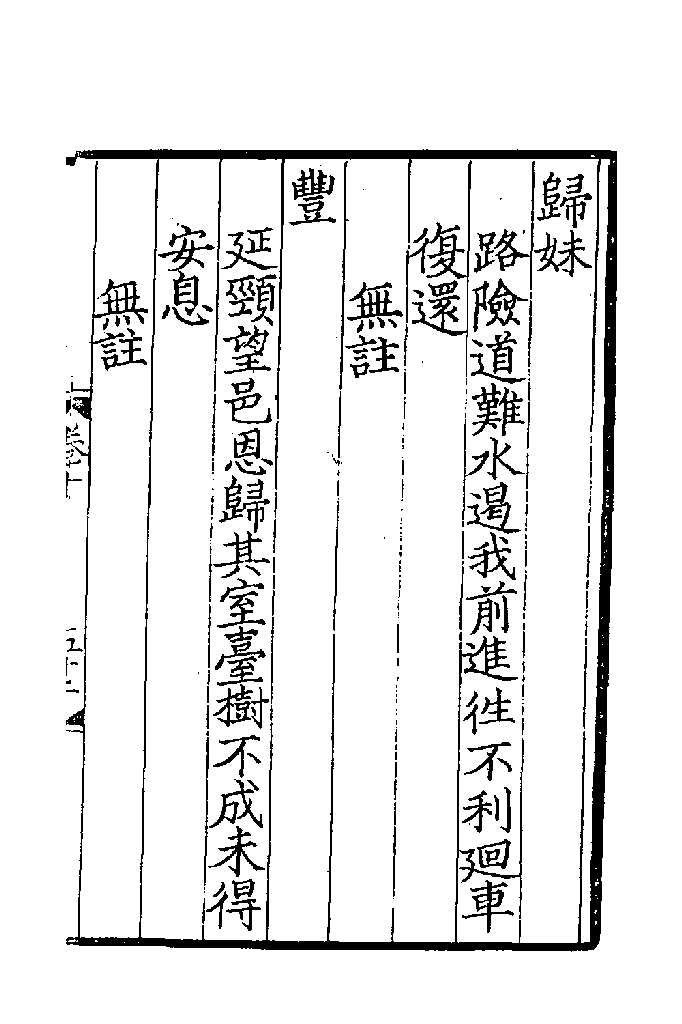 歸妹
路險道難水遏我前進徃不利廻車
復還
無註
豐
延頸望邑恩歸其室臺樹不成未得
安息
無註
卷十
五十二